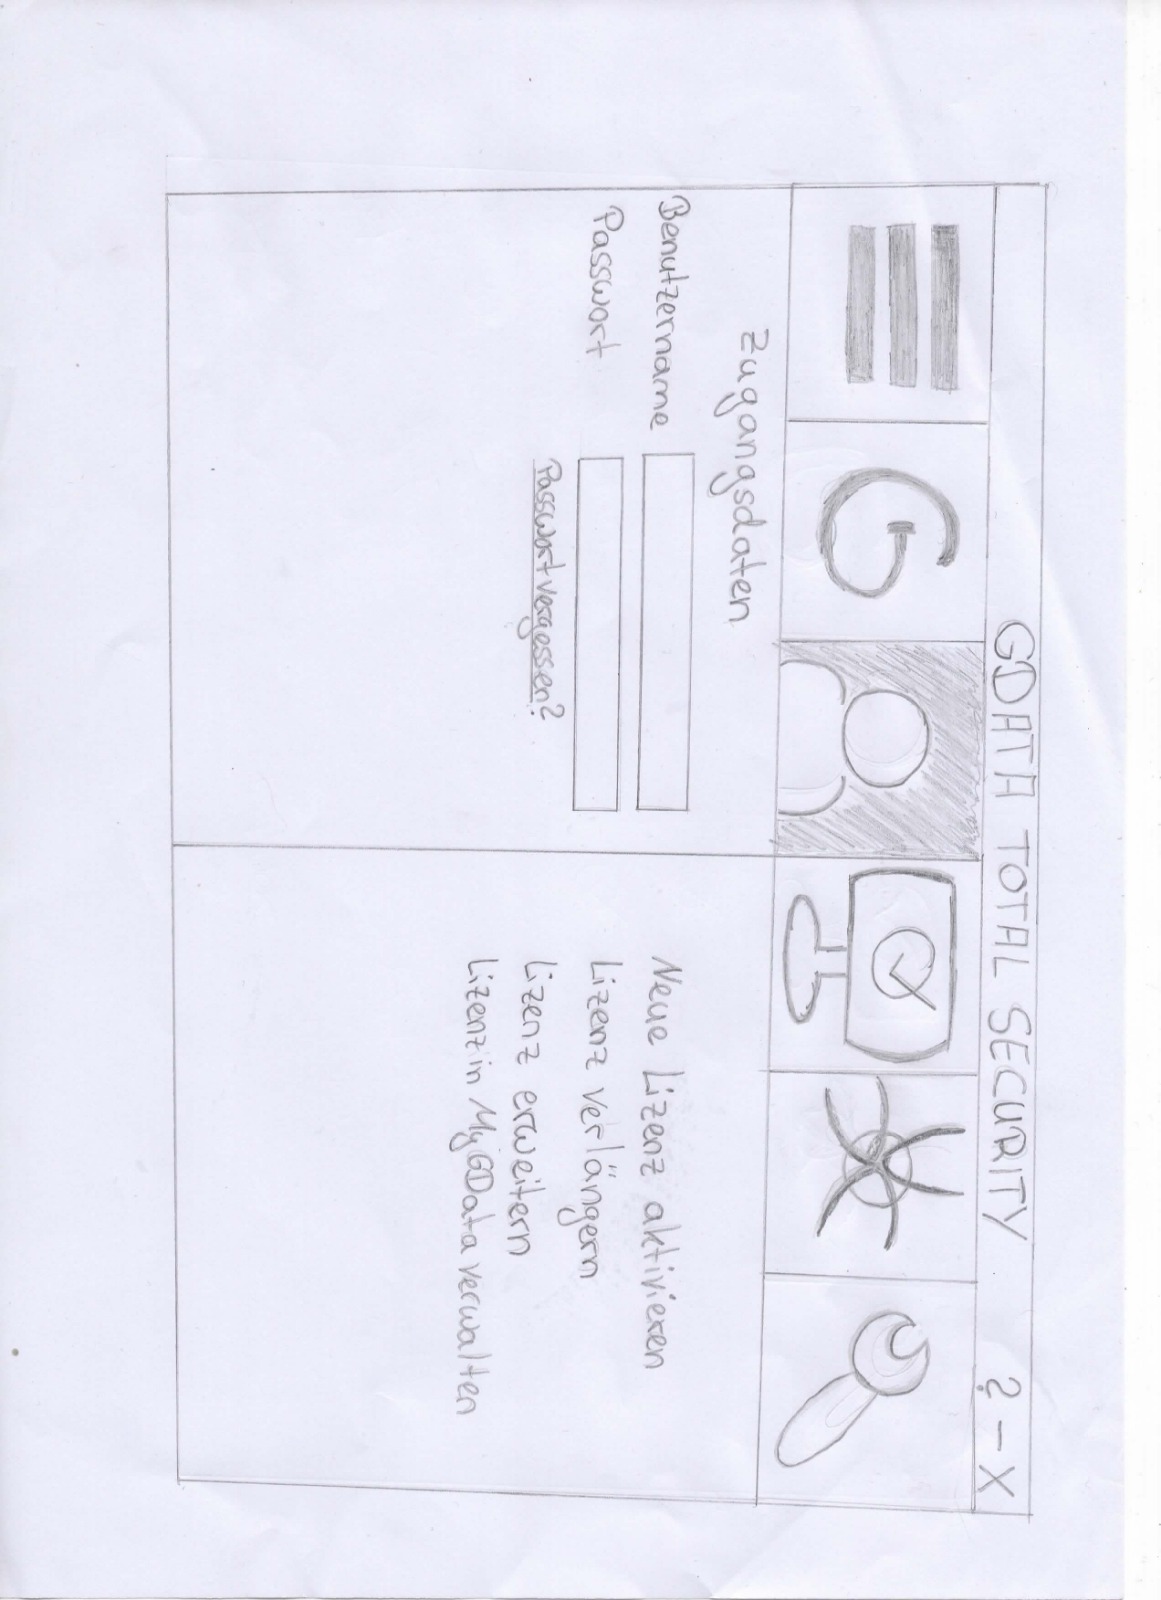 GDATA TOTAL SECURITY ? - X
Zugangsdaten
Benutzername
Passwort
Passwort vergessen?
Neue Lizenz aktivieren
Lizenz verlängern
Lizenz erweitern
Lizenz in MyGData verwalten